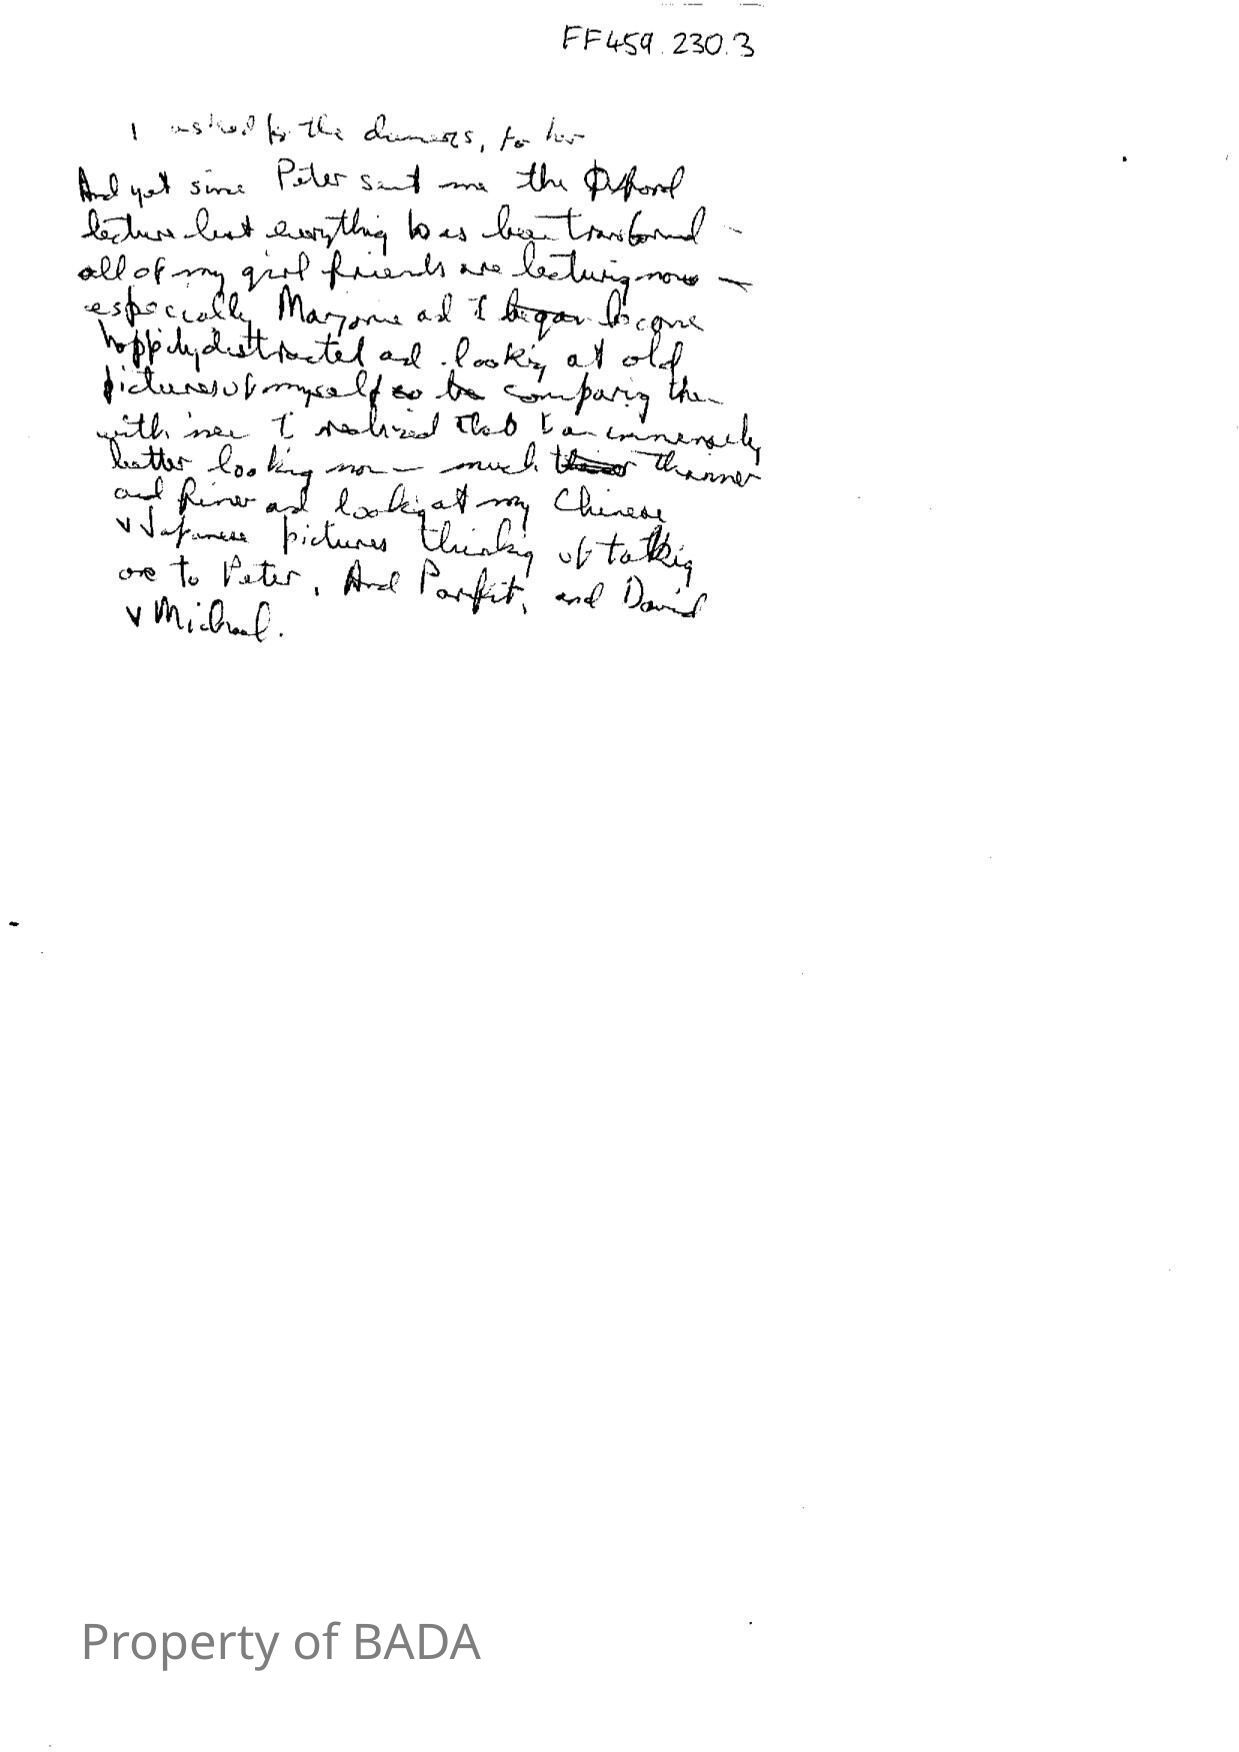 FF459.230.3
I asked for the dinners, to her
And yet since Peter sent me the Oxford
lecture list everything has been transformed -
all of my girl friends are lecturing now -
especially Marjorie ad I began become
happily distracted ad looking at old
pictures of myself so be comparing them
with new I realized that I am immensely
better looking now - much thinner
and finer ad looking at my Chinese
v Japanese pictures thinking of talking
one to Peter, And Parfit, and David
v Michael.
Property of BADA